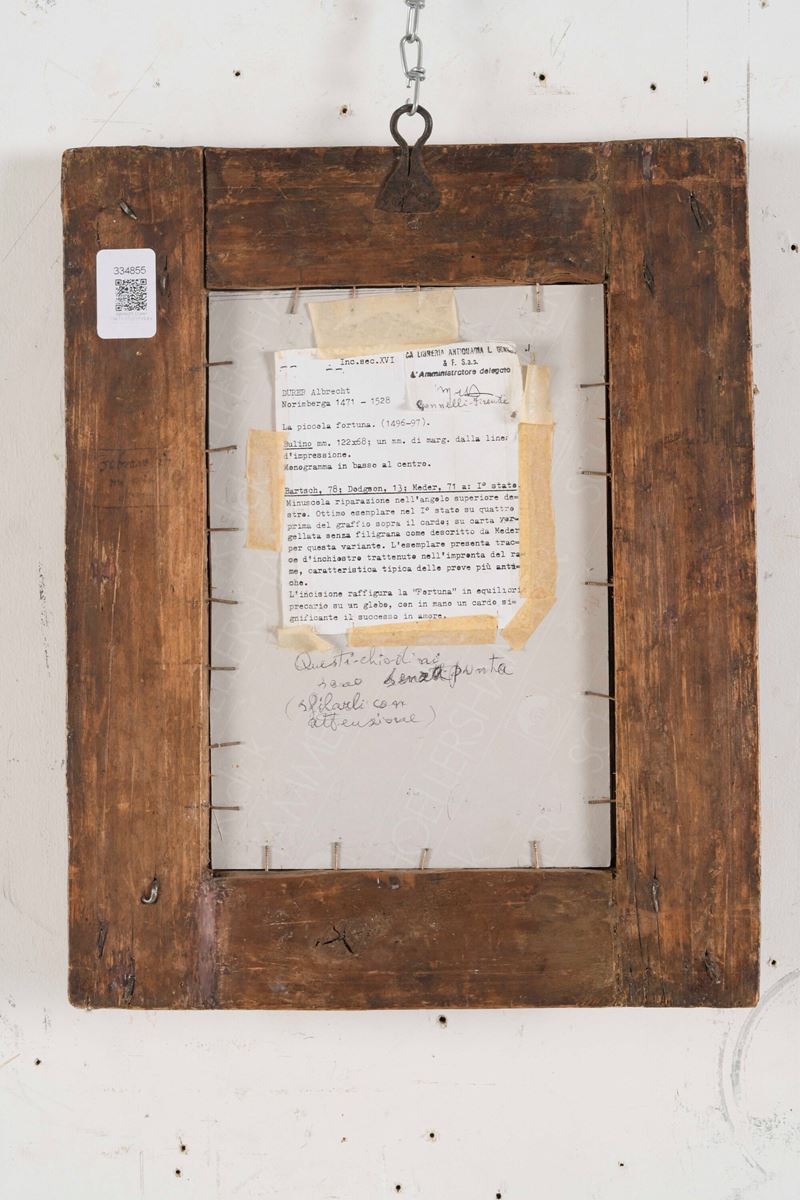 334855
Inc.sec.XVI
LIBRERIA ANTIQUARIA
& F. S.a.s.
L'Amministratore delegato
DURER Albrecht
Norimberga 1471 - 1528
La piccola fortuna. (1496-97).
Bulino mm. 122x68; un mm. di marg. dalla linea
d'impressione.
Monogramma in basso al centro.
Bartsch, 78; Dodgson, 13; Meder, 71 a: I° stato
Minuscola riparazione nell'angolo superiore de=
stro. Ottimo esemplare nel I° stato su quattro
prima del graffio sopra il cardo; su carta ver=
gellata senza filigrana come descritto da Meder
per questa variante. L'esemplare presenta trac=
ce d'inchiostro trattenute nell'impronta del ra=
me, caratteristica tipica delle prove più anti=
che.
L'incisione raffigura la "Fortuna" in equilibrio
precario su un globo, con in mano un cardo si=
gnificante il successo in amore.
Questi chiodini
sono senza punta
(sfilarli con
attenzione)